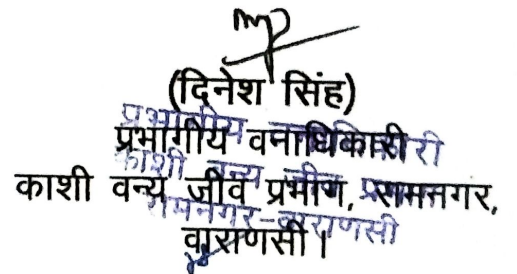 (दिनेश सिंह)
प्रभागीय वनाधिकारी
काशी वन्य जीव प्रभाग, रामनगर,
वाराणसी।
प्रभागीय वनाधिकारी
काशी वन्य जीव प्रभाग
रामनगर-वाराणसी